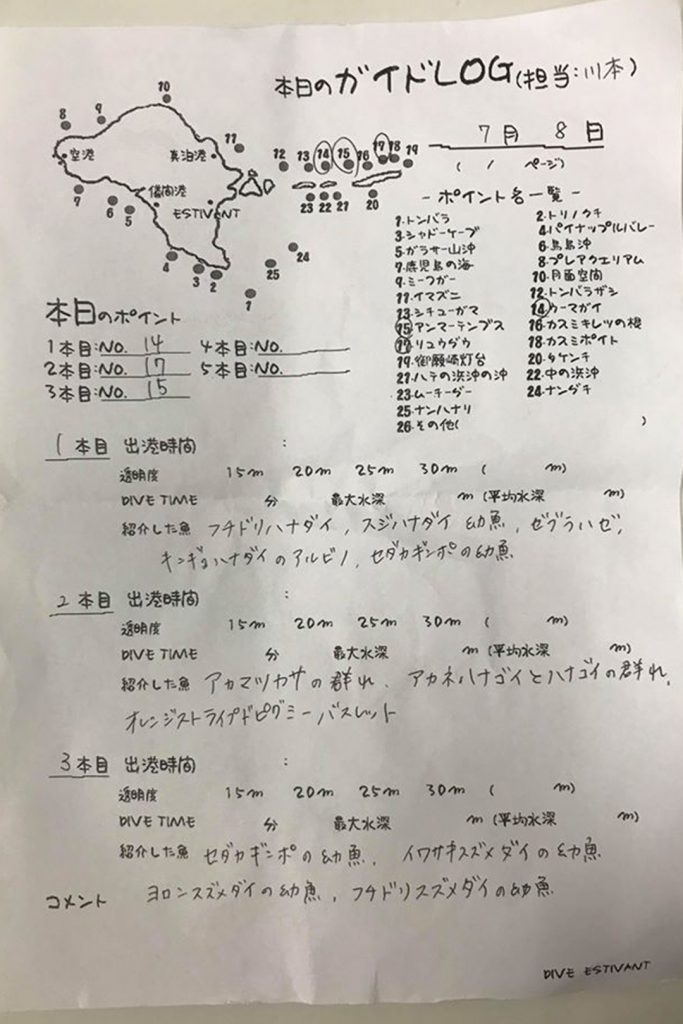 本日のガイドLOG(担当:川本)
7月 8日
( / ページ)
10
8
9
11
空港
真泊港
7
6
5
儀間港
ESTIVANT
4
3
2
1
25
24
12 13 14 15 16 17 18 19
23 22 21 20
-ポイント名一覧-
1.トンバラ 2.トリノクチ
3.シャドーケーブ 4.パイナップルバレー
5.ガラサー山沖 6.鳥島沖
7.鹿児島の海 8.プレアクエリアム
9.ミーフガー 10.月面空間
11.イマズニ 12.トンバラザシ
13.シチューガマ 14.ウーマガイ
15.アンマーテンプス 16.カスミキレツの根
17.リュウダウ 18.カスミポイント
19.御願崎灯台 20.タケンチ
21.ハテの浜沖の沖 22.中の浜沖
23.ムーチーダー 24.ナンダチ
25.ナンハナリ
26.その他( )
本日のポイント
1本目:NO. 14 4本目:NO.
2本目:NO. 17 5本目:NO.
3本目:NO. 15
1本目 出港時間 :
透明度 15m 20m 25m 30m ( m)
DIVE TIME 分 最大水深 m (平均水深 m)
紹介した魚 フチドリハナダイ, スジハナダイ 幼魚, ゼブラハゼ,
キンギョハナダイのアルビノ, セダカギンポの幼魚
2本目 出港時間 :
透明度 15m 20m 25m 30m ( m)
DIVE TIME 分 最大水深 m (平均水深 m)
紹介した魚 アカマツカサの群れ、アカネハナゴイとハナゴイの群れ,
オレンジストライプドピグミーバスレット
3本目 出港時間 :
透明度 15m 20m 25m 30m ( m)
DIVE TIME 分 最大水深 m (平均水深 m)
紹介した魚 セダカギンポの幼魚, イワサキスズメダイの幼魚
コメント ヨロンスズメダイの幼魚, フチドリスズメダイの幼魚
DIVE ESTIVANT